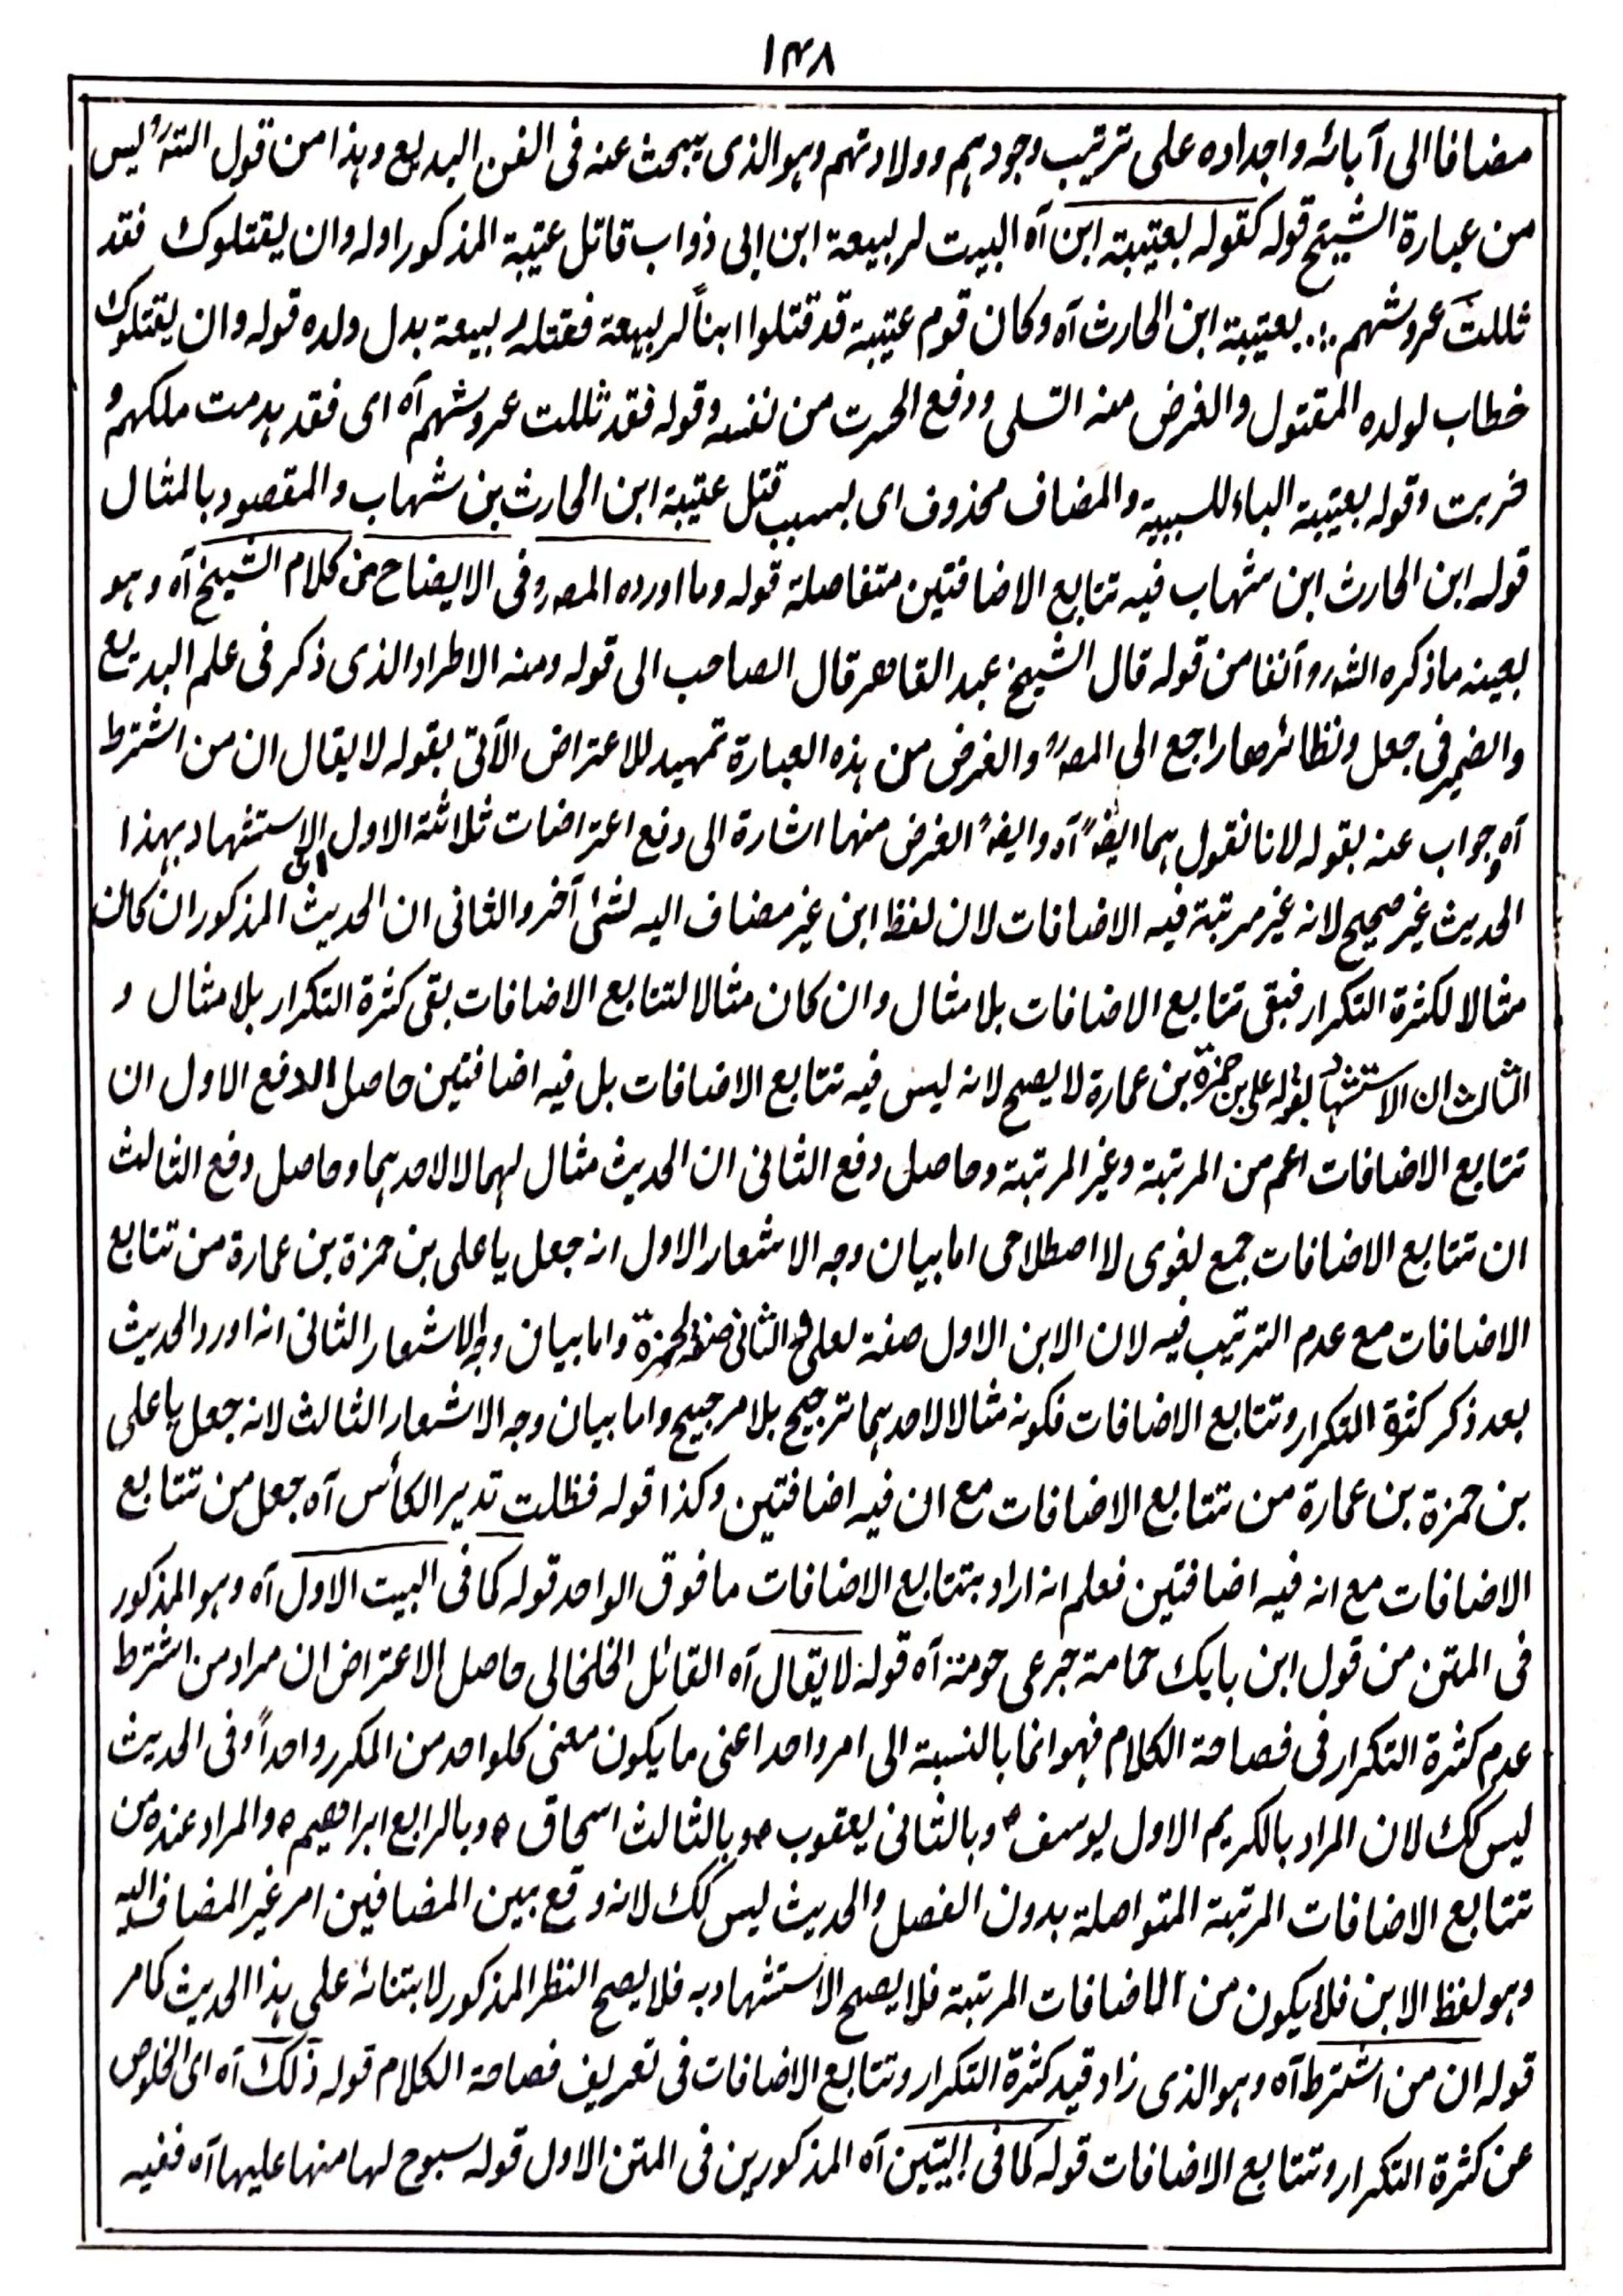 ١٣٨
مضافا الى آبائه واجداده على ترتيب وجودهم وولادتهم وهو الذى يبحث عنه فى الفن البديع وهذا من قول الشہ ليس
من عبارة الشيخ قوله كقوله بعتيبة ابن آه البيت لربيعة ابن ابى ذواب قاتل عتيبة المذكور اوله وان يقتلوك فقد
ثللت عروشهم ∴ بعتيبة ابن الحارث آه وكان قوم عتيبة قد قتلوا ابناً لربيعة فقتله ربيعة بدل ولده قوله وان يقتلوك
خطاب لولده المقتول والغرض منه التسلى ودفع الحسرت من نفسه وقوله فقد ثللت عروشهم آه اى فقد هدمت ملكهم و
خربت وقوله بعتيبة الباء للسببية والمضاف محذوف اى بسبب قتل عتيبة ابن الحارث بن شهاب والمقصود بالمثال
قوله ابن الحارث ابن شهاب فيه تتابع الاضافتين متفاصلة قوله وما اورده المصہ فى الايضاح من كلام الشيخ آه وهو
بعينه ما ذكره الشہ آنفا من قوله قال الشيخ عبد القاهر قال الصاحب الى قوله ومنه الاطراد الذى ذكر فى علم البديع
والضمير فى جعل ونظائرها راجع الى المصہ والغرض من هذه العبارة تمهيد للاعتراض الآتى بقوله لا يقال ان من اشترط
آه وجواب عنه بقوله لانا نقول هما ايضہ آه وايضہ الغرض منهما اشارة الى دفع اعتراضات ثلاثة الاول ان الاستشهاد بهذا
الحديث غير صحيح لانه غير مرتبة فيه الاضافات لان لفظ ابن غير مضاف اليه لشئ آخر والثانى ان الحديث المذكور ان كان
مثالا لكثرة التكرار فبقى تتابع الاضافات بلا مثال وان كان مثالا لتتابع الاضافات بقى كثرة التكرار بلا مثال و
الثالث ان الاستشهاد بقوله على بن حمزة بن عمارة لا يصح لانه ليس فيه تتابع الاضافات بل فيه اضافتين حاصل الدفع الاول ان
تتابع الاضافات اعم من المرتبة وغير المرتبة وحاصل دفع الثانى ان الحديث مثال لهما لا لاحدهما وحاصل دفع الثالث
ان تتابع الاضافات جمع لغوى لا اصطلاحى اما بيان وجه الاشعار الاول انه جعل يا على بن حمزة بن عمارة من تتابع
الاضافات مع عدم الترتيب فيه لان الابن الاول صفة لعلى والثانى صفة لحمزة واما بيان وجه الاشعار الثانى انه اورد الحديث
بعد ذكر كثرة التكرار وتتابع الاضافات فكونه مثالا لاحدهما ترجيح بلا مرجيح واما بيان وجه الاشعار الثالث لانه جعل يا على
بن حمزة بن عمارة من تتابع الاضافات مع ان فيه اضافتين وكذا قوله فظلت تدير الكأس آه جعل من تتابع
الاضافات مع انه فيه اضافتين فعلم انه اراد بتتابع الاضافات ما فوق الواحد قوله كما فى البيت الاول آه وهو المذكور
فى المتن من قول ابن بابك حمامة جرعى حومة آه قوله لا يقال آه القائل الخلخالى حاصل الاعتراض ان مراد من اشترط
عدم كثرة التكرار فى فصاحة الكلام فهو انما بالنسبة الى امر واحد اعنى ما يكون معنى كلواحد من المكرر واحداً وفى الحديث
ليس كك لان المراد بالكريم الاول يوسف ؑ وبالثانى يعقوب ؑ وبالثالث اسحاق ؑ وبالرابع ابراهيم ؑ والمراد عنده من
تتابع الاضافات المرتبة المتواصلة بدون الفصل والحديث ليس كك لانه وقع بين المضافين امر غير المضاف اليه
وهو لفظ الابن فلا يكون من الاضافات المرتبة فلا يصح الاستشهاد به فلا يصح النظر المذكور لابتنائه على هذا الحديث كما مر
قوله ان من اشترط آه وهو الذى زاد قيد كثرة التكرار وتتابع الاضافات فى تعريف فصاحة الكلام قوله ذلك آه اى الخلوص
عن كثرة التكرار وتتابع الاضافات قوله كما فى البيتين آه المذكورين فى المتن الاول قوله سبوح لها منها عليها آه ففيه